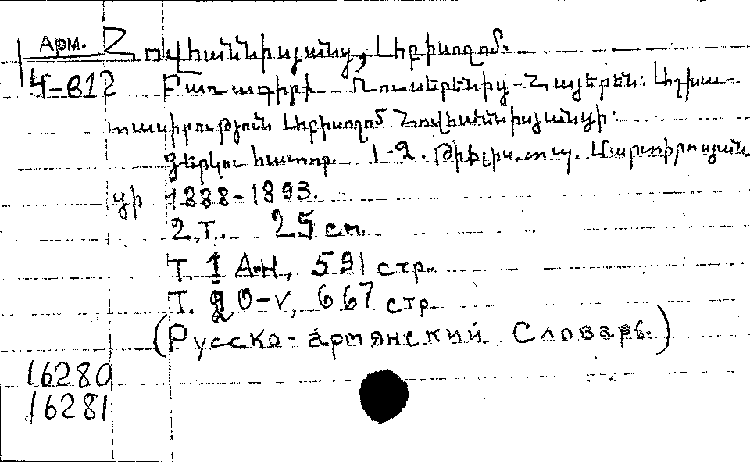 Арм. Հովհաննիսյանց, Աբիսողոմ.
4-812 Բառագիրք Ռուսերենից-Հայերեն: Աշխա-
տասիրություն Աբիսողոմ Հովհաննիսյանցի.
Երկու հատոր. 1-2. Թիֆլիս. տպ. Մարտիրոսյան
ցի 1888-1893.
2.т. 25 см.
Т 1 А-Н, 591 стр.
Т. 2 О-V, 667 стр
(Русско-армянский Словарь.)
16280
16281